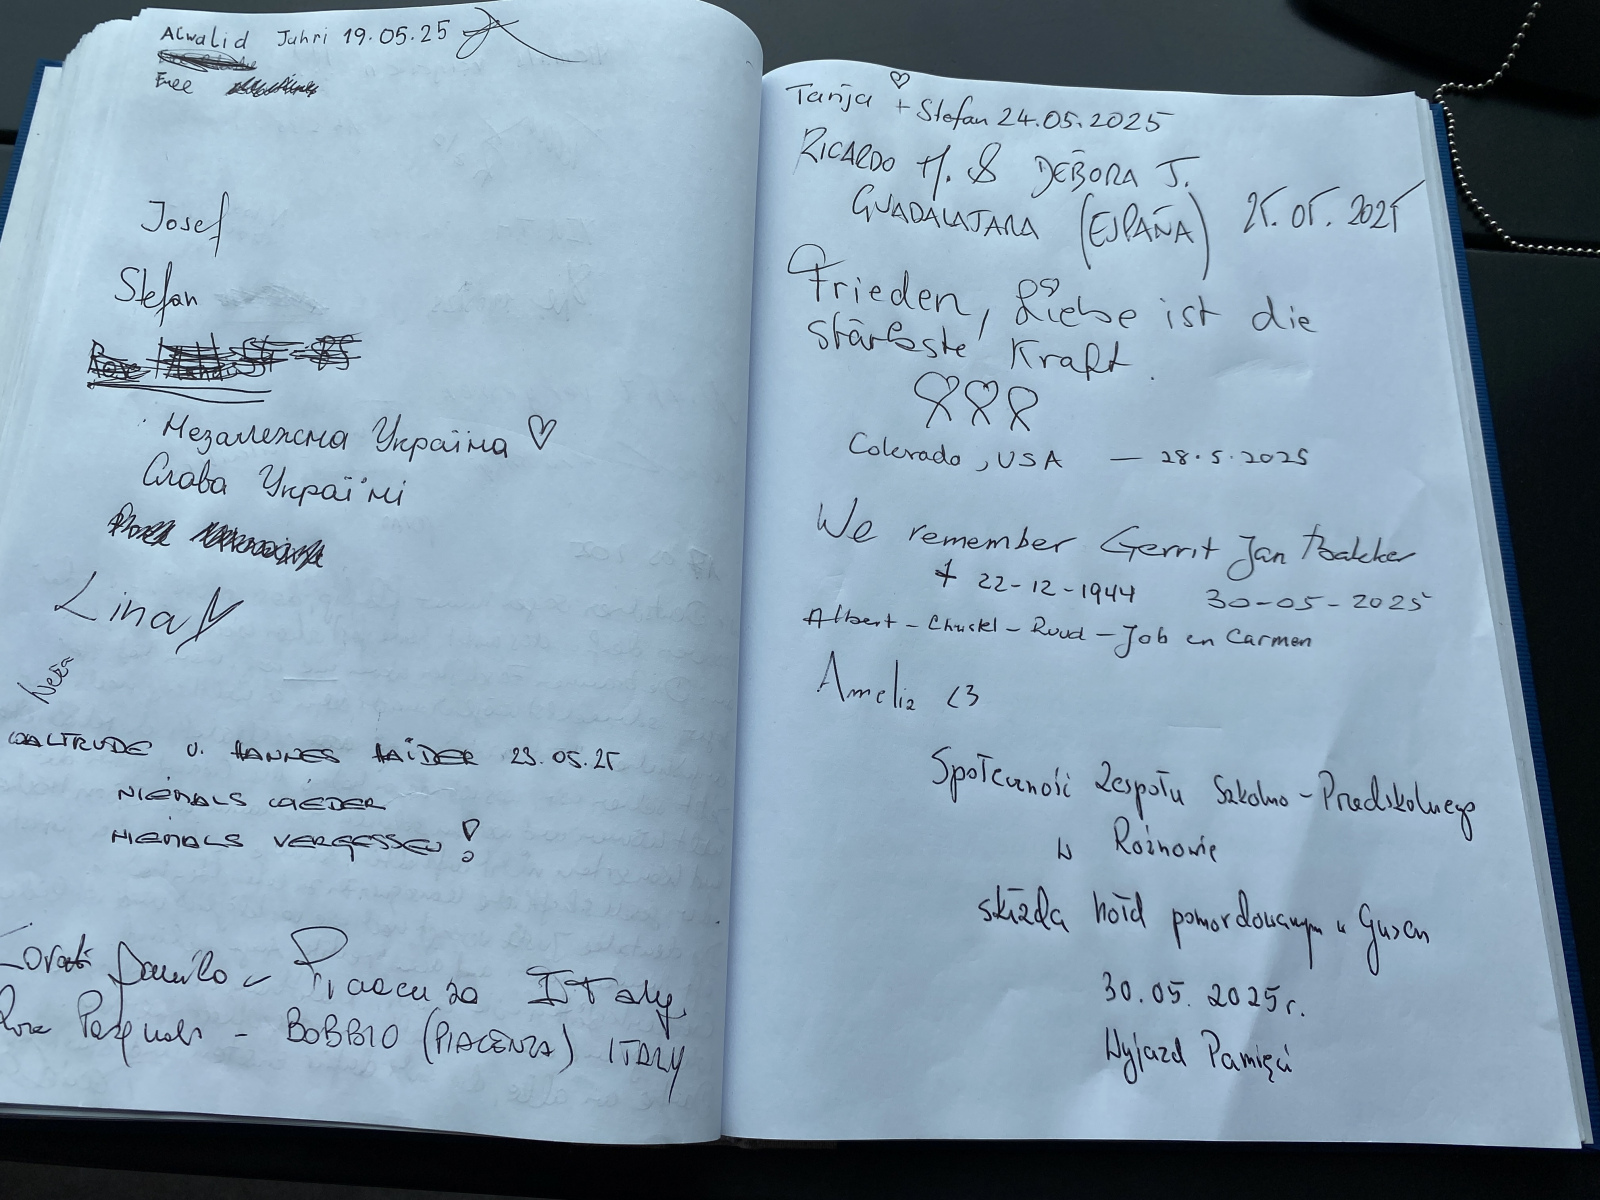 Alwalid Juhri 19.05.25
Free
Josef
Stefan
Незалежна Україна ♡
Слава Україні
Lina ♡
Neža
WALTRUDE U. HANNES HAIDER 23.05.25
NIEMALS WIEDER
NIEMALS VERGESSEN!
Danilo - Piacenza ITaly
- BOBBIO (PIACENZA) ITALY
Tanja ♡ + Stefan 24.05.2025
RICARDO H. & DEBORA J.
GUADALAJARA (ESPAÑA) 25.05.2025
Frieden, Liebe ist die
stärkste Kraft.
Colerado, USA — 28.5.2025
We remember Gerrit Jan Bakker
† 22-12-1944 30-05-2025
Albert - Christel - Ruud - Job en Carmen
Amelia <3
Społeczność Zespołu Szkolno-Przedszkolnego
w Rożnowie
składa hołd pomordowanym w Gusen
30.05.2025r.
Wyjazd Pamięci